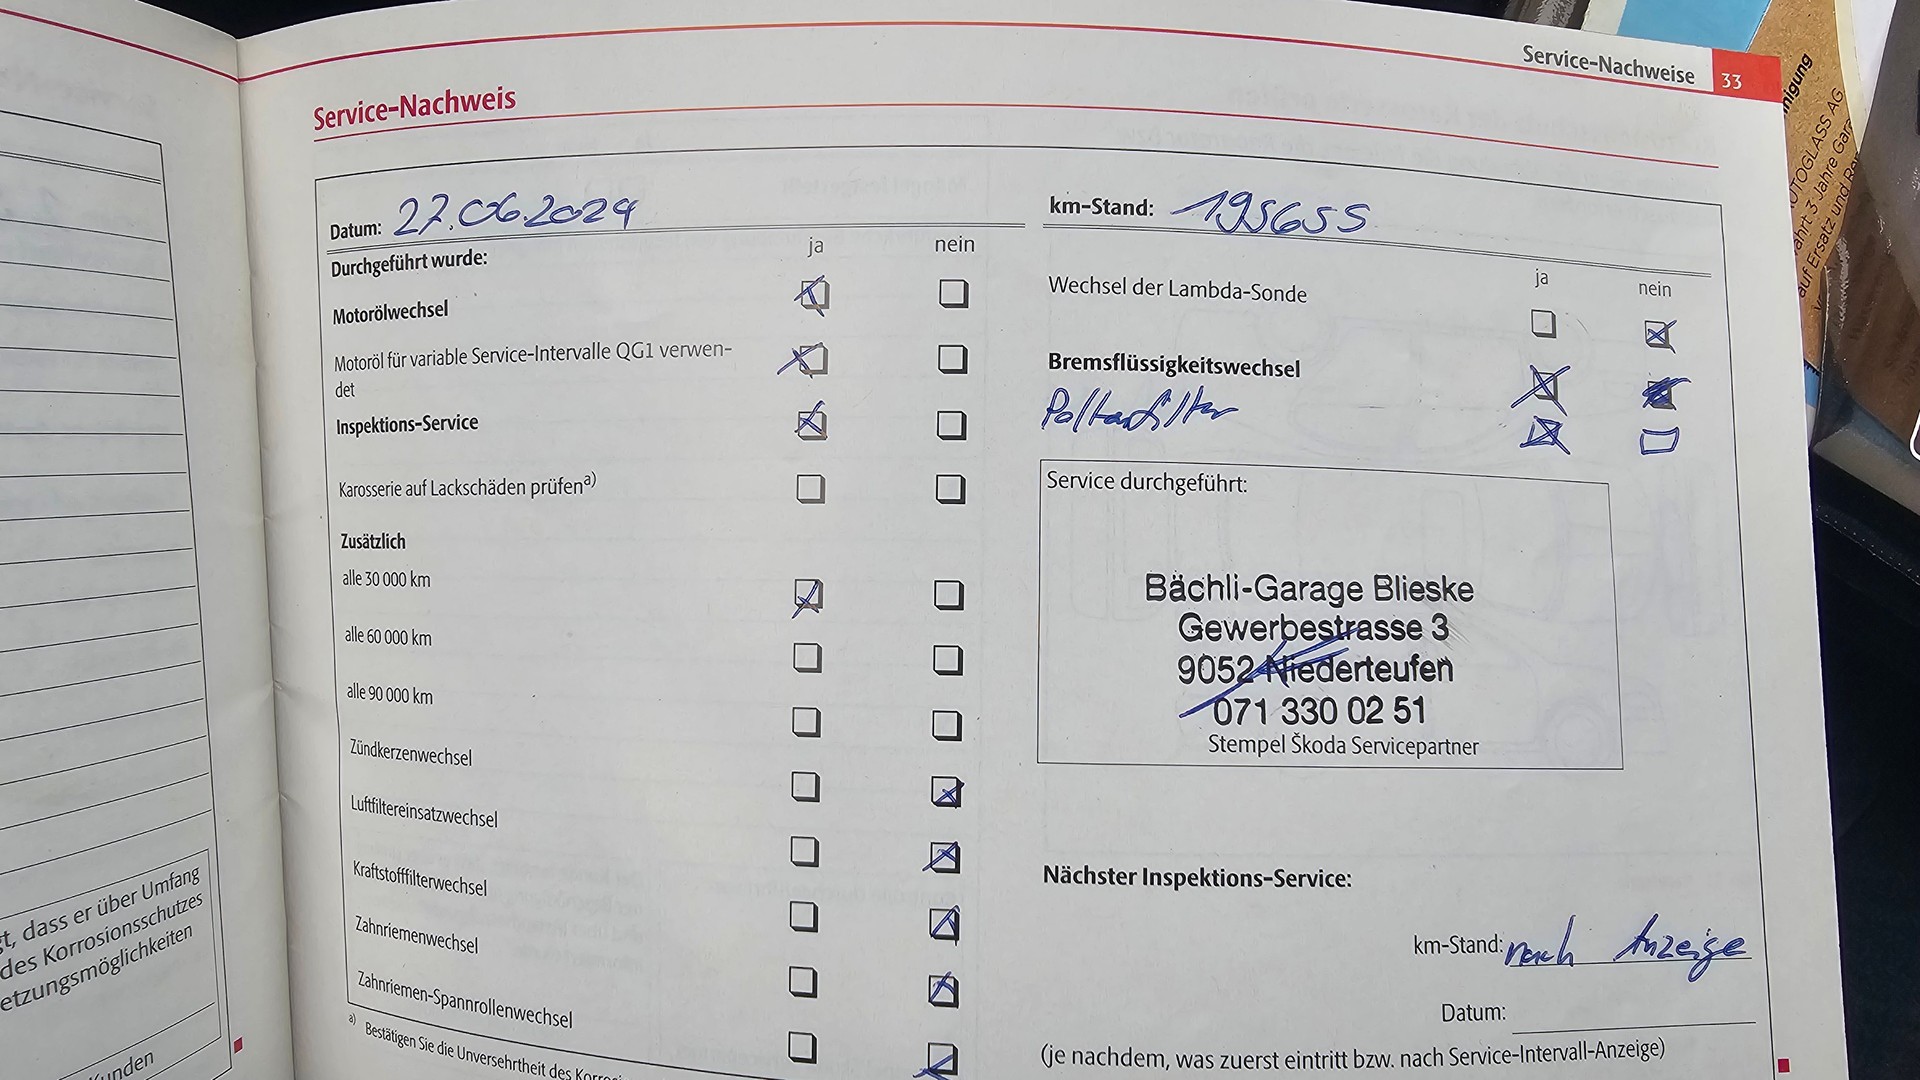 Service-Nachweise 33
Service-Nachweis
Datum: 27.06.2024
km-Stand: 195655
Durchgeführt wurde:
ja nein
Motorölwechsel
Motoröl für variable Service-Intervalle QG1 verwen-
det
Inspektions-Service
Karosserie auf Lackschäden prüfen a)
Zusätzlich
alle 30 000 km
alle 60 000 km
alle 90 000 km
Zündkerzenwechsel
Luftfiltereinsatzwechsel
Kraftstofffilterwechsel
Zahnriemenwechsel
Zahnriemen-Spannrollenwechsel
a) Bestätigen Sie die Unversehrtheit des
ja nein
Wechsel der Lambda-Sonde
Bremsflüssigkeitswechsel
Pollenfilter
Service durchgeführt:
Bächli-Garage Blieske
Gewerbestrasse 3
9052 Niederteufen
071 330 02 51
Stempel Škoda Servicepartner
Nächster Inspektions-Service:
km-Stand: nach Anzeige
Datum:
(je nachdem, was zuerst eintritt bzw. nach Service-Intervall-Anzeige)
dass er über Umfang
des Korrosionsschutzes
etzungsmöglichkeiten
unden
nigung
UTOGLASS AG
3 Jahre
auf Ersatz und